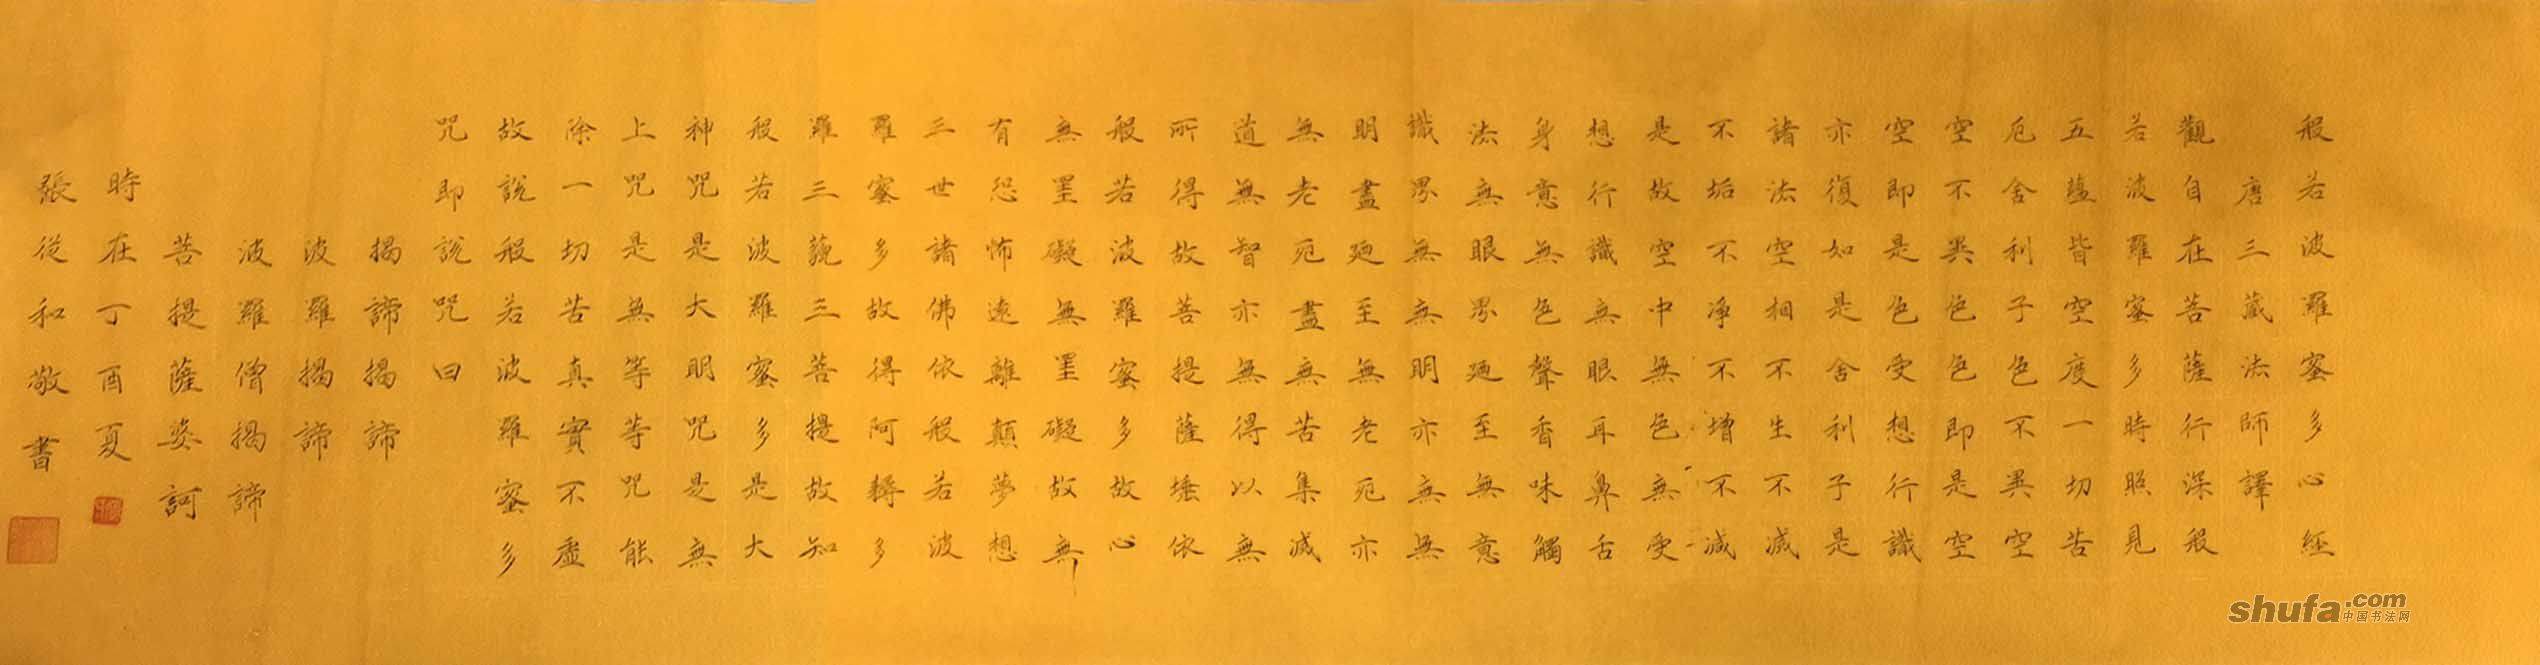 般若波羅蜜多心經
唐三藏法師譯
觀自在菩薩行深般
若波羅蜜多時照見
五蘊皆空度一切苦
厄舍利子色不異空
空不異色色即是空
空即是色受想行識
亦復如是舍利子是
諸法空相不生不滅
不垢不淨不增不減
是故空中無色無受
想行識無眼耳鼻舌
身意無色聲香味觸
法無眼界廼至無意
識界無無明亦無無
明盡廼至無老死亦
無老死盡無苦集滅
道無智亦無得以無
所得故菩提薩埵依
般若波羅蜜多故心
無罣礙無罣礙故無
有恐怖遠離顛夢想
三世諸佛依般若波
羅蜜多故得阿耨多
羅三藐三菩提故知
般若波羅蜜多是大
神咒是大明咒是無
上咒是無等等咒能
除一切苦真實不虛
故說般若波羅蜜多
咒即說咒曰
揭諦揭諦
波羅揭諦
波羅僧揭諦
菩提薩婆訶
時在丁酉夏
張從和敬書
shufa.com
中国书法网